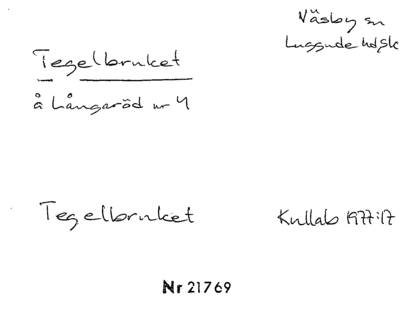 Väsby sn
Luggude hd, Sk
Tegelbruket
å Långaröd nr 4
Tegelbruket
Kullab 1977:17
Nr 21769